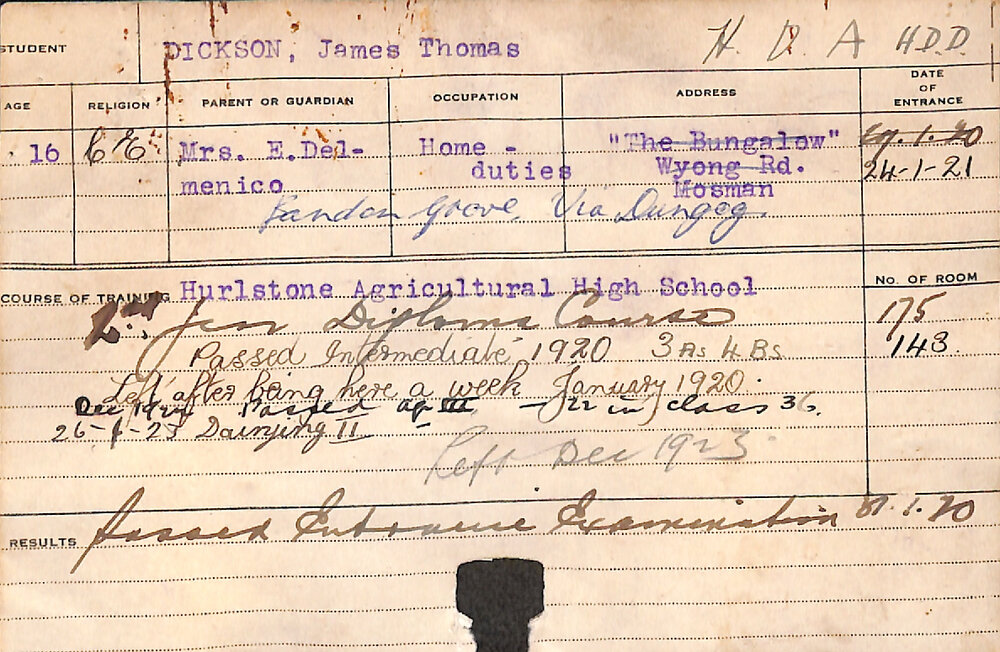 STUDENT DICKSON, James Thomas H D A HDD
AGE RELIGION PARENT OR GUARDIAN OCCUPATION ADDRESS DATE OF ENTRANCE
16 C E Mrs. E.Del- Home - "The Bungalow" .1.20
menico duties Wyong Rd. 24-1-21
Mosman
Bandon Grove Via Dungog.
COURSE OF TRAINING Hurlstone Agricultural High School No. OF ROOM
Year Diploma Course 175
Passed Intermediate 1920 3 As 4 Bs 143
Left after being here a week January 1920.
Dec Passed Ag III in class 36.
Dairying II
Left Dec 1923
RESULTS Passed Entrance Examination .1.20